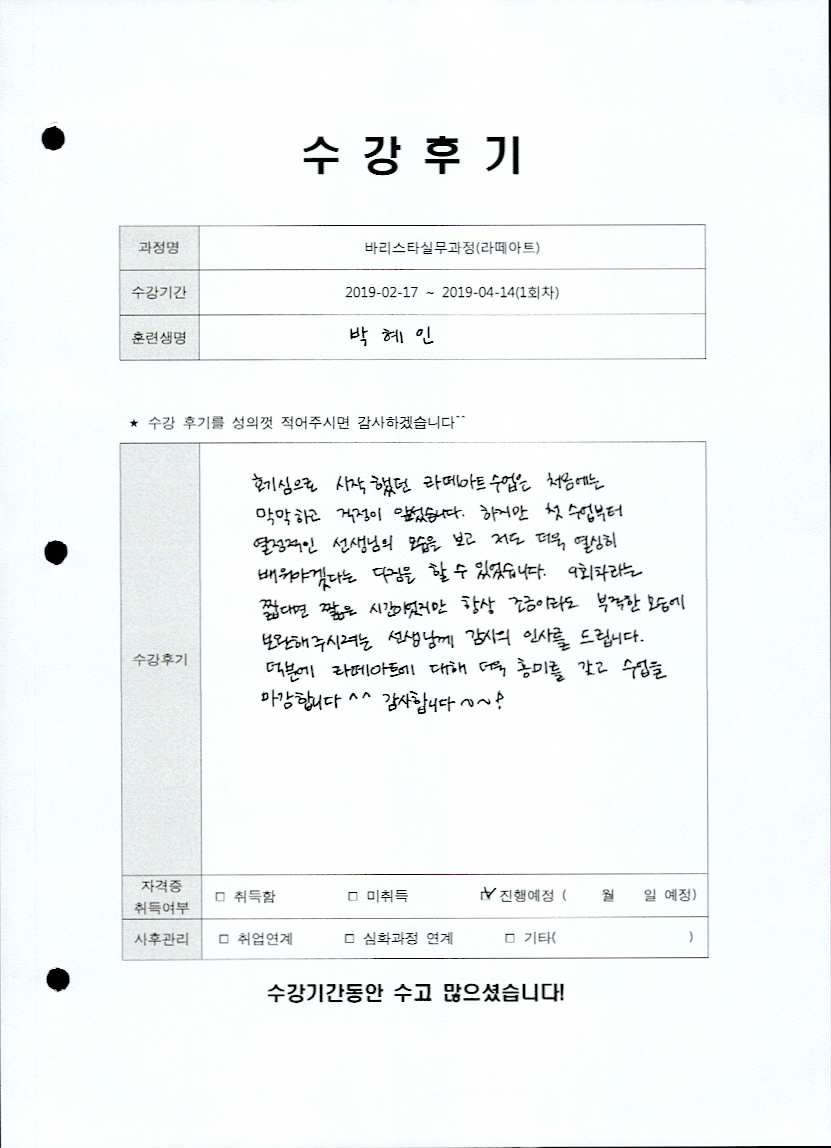 수강후기
과정명 바리스타실무과정(라떼아트)
수강기간 2019-02-17 ~ 2019-04-14(1회차)
훈련생명 박혜인
★ 수강 후기를 성의껏 적어주시면 감사하겠습니다^^
수강후기
호기심으로 시작했던 라떼아트수업은 처음에는
막막하고 걱정이 앞섰습니다. 하지만 첫 수업부터
열정적인 선생님의 모습을 보고 저도 더욱 열심히
배워야겠다는 다짐을 할 수 있었습니다. 9회차라는
짧다면 짧은 시간이었지만 항상 조금이라도 부족한 모습에
보완해주시려는 선생님께 감사의 인사를 드립니다.
덕분에 라떼아트에 대해 더욱 흥미를 갖고 수업을
마감합니다 ^^ 감사합니다~~!
자격증 취득여부 □ 취득함 □ 미취득 ☑ 진행예정 ( 월 일 예정)
사후관리 □ 취업연계 □ 심화과정 연계 □ 기타( )
수강기간동안 수고 많으셨습니다!